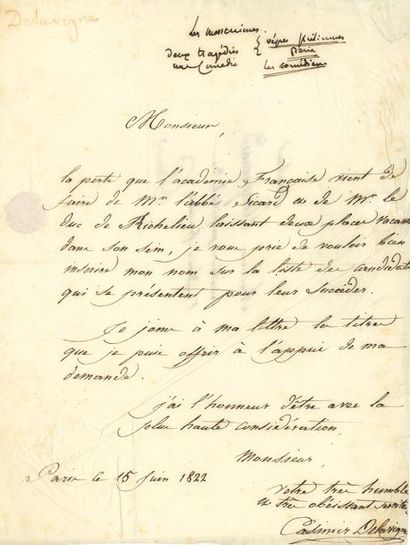 Delavigne
Les messeniennes.
deux tragédies { vêpres siciliennes
Paria
une Comédie { les comédiens
Monsieur,
la perte que l'academie Française vient de
faire de Mr l'abbé Sicard et de Mr le
duc de Richelieu laissant deux places vacantes
dans son sein, je vous prie de vouloir bien
inscrire mon nom sur la liste des candidats
qui se présentent pour leur succéder.
Je joins à ma lettre les titres
que je puis offrir à l'appui de ma
demande.
j'ai l'honneur d'être avec la
plus haute considération,
Monsieur,
Paris ce 15 juin 1822
votre très humble
et très obéissant servite
Casimir Delavigne